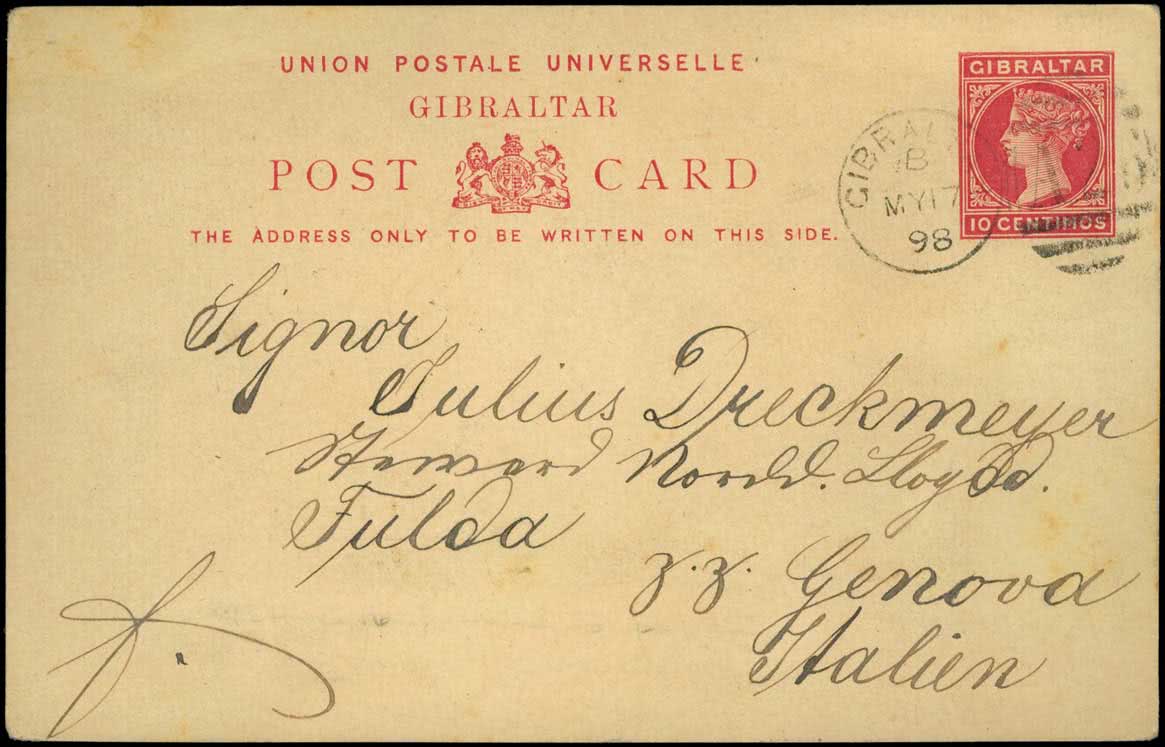 UNION POSTALE UNIVERSELLE
GIBRALTAR
POST CARD
THE ADDRESS ONLY TO BE WRITTEN ON THIS SIDE.
GIBRALTAR
10 CENTIMOS
GIBRAL
B
MY 17
98
Signor
Julius Dreckmeyer
Steward Nordd. Lloydd.
Fulda
z.z. Genova
Italien